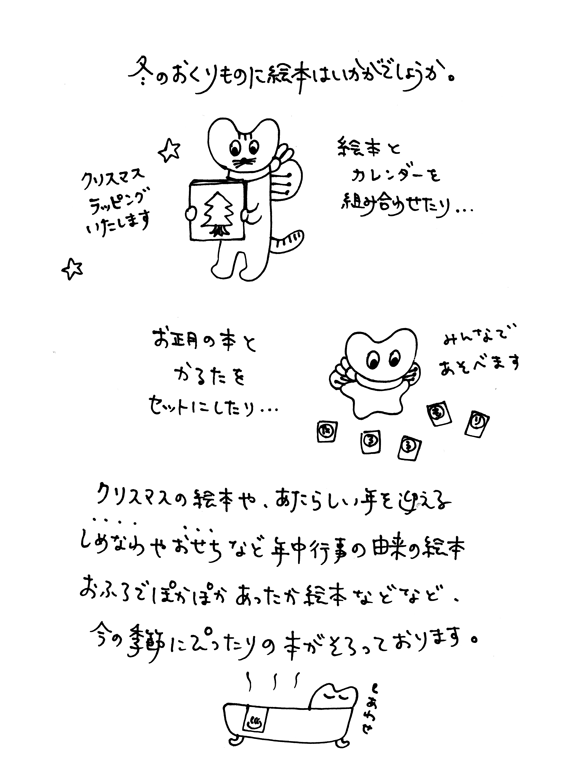 冬のおくりものに絵本はいかがでしょうか。
絵本と
カレンダーを
組み合わせたり...
クリスマス
ラッピング
いたします
お正月の本と
かるたを
セットにしたり...
みんなで
あそべます
た
る
る
り
クリスマスの絵本や、あたらしい年を迎える
しめなわやおせちなど年中行事の由来の絵本
おふろでぽかぽかあったか絵本などなど、
今の季節にぴったりの本がそろっております。
しあわせ